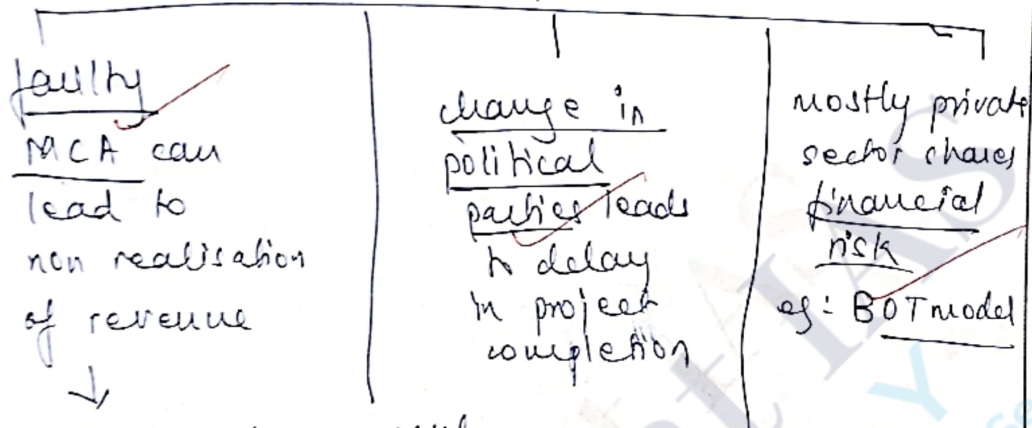 faulty
MCA can
lead to
non realisation
of revenue
change in
political
parties leads
to delay
in project
completion
mostly private
sector shares
financial
risk
eg: BOT model
IAS